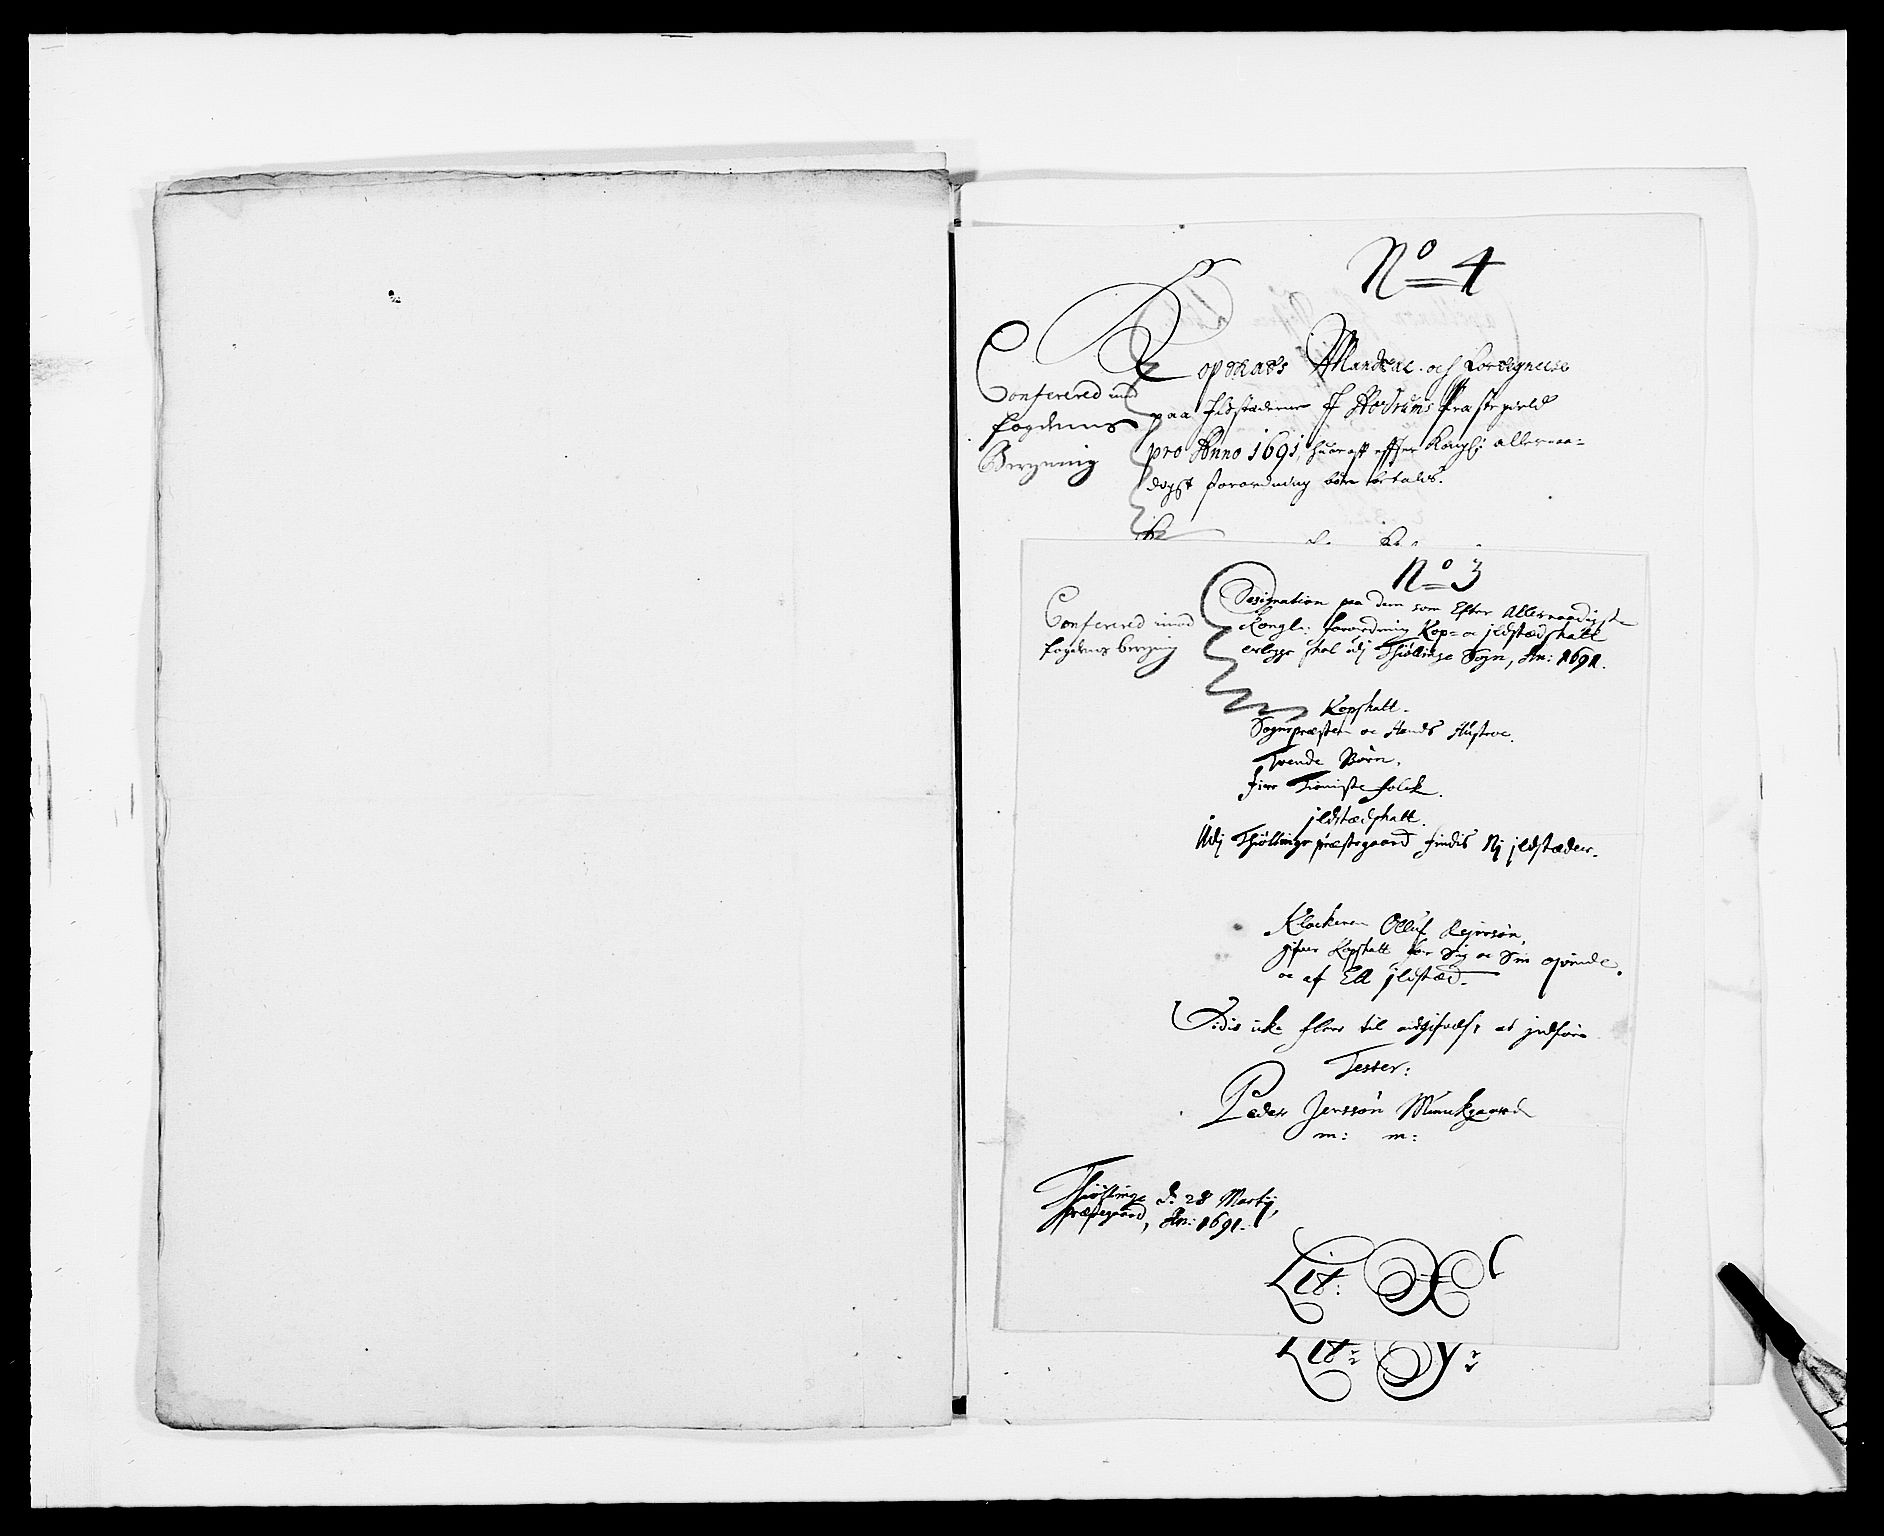 No 4
Conferered imod
fogdens
Beregning
Kopskats Mandtal och Fortegnelse
paa Ildstæderne J Hedrums Præstegield
pro Anno 1691, huoraff effter Kongl: allernaa=
digst forordning bør betales.
No 3
Conferered imod
fogdens beregning
Designation paa dem som Efter Allernaadigste
Kongl: forordning Kop= oc jldstædskatt
erlegge skal udj Thiøllinge Sogn, An: 1691.
Kopskatt.
Sognepræsten oc Hands Hustroe.
Tvende Børn.
Fire Tienistefolck.
jldstædskatt.
Udj Thiøllinge præstegaard findis Nj jldstæder.
Klockeren Olluf Rejersøn,
gifuer Kopskatt for Sig oc Sin Qvinde,
oc af Ett jldstæd.
Vidis icke flere til at jndføre
Tester:
Peder Jenssøn Munckgaard
m: m:
Thiøllinge
præstegaard, d: 28 Martij,
An: 1691.
Lit: X
Lit: Y